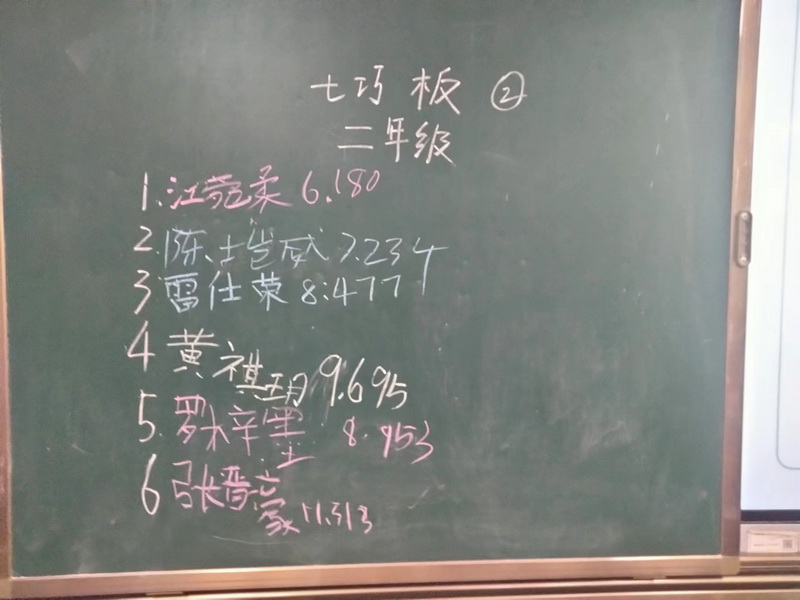 七巧板②
二年级
1.江莞柔 6.180
2.陈士岂威 7.234
3雷仕荣 8:477
4黄祺玥 9.695
5.罗梓墨 8.953
6张晋豪 11.313